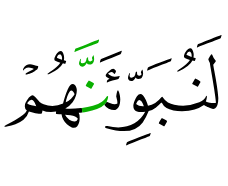 لَنُبَوِّئَنَّهُمْ